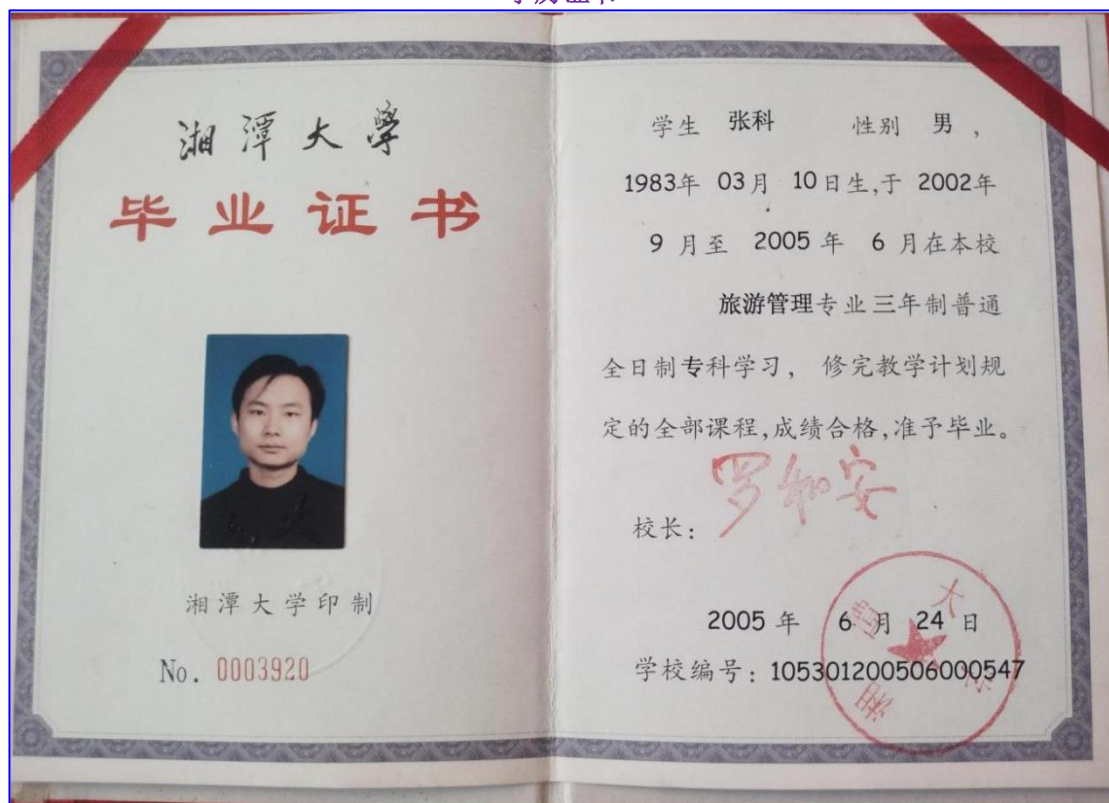 学历证书
湘潭大學
毕业证书
湘潭大学印制
No. 0003920
学生 张科 性别 男 ,
1983年 03月 10日生,于 2002年
9 月至 2005 年 6 月在本校
旅游管理专业三年制普通
全日制专科学习, 修完教学计划规
定的全部课程,成绩合格,准予毕业。
校长: 罗和安
2005 年 6 月 24 日
学校编号: 105301200506000547
湘潭大学